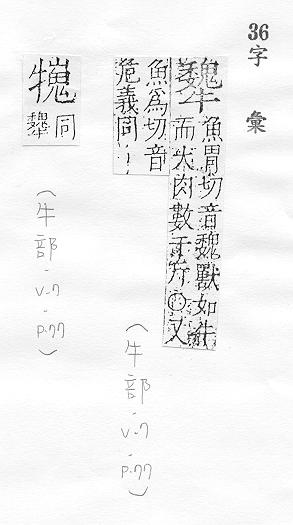 36
字彙
犩
魚胃切音魏獸如牛
而大肉數千斤○又
魚為切音
危義同
(牛部.v.7.p.77)
同
犩
(牛部.v.7.p.77)